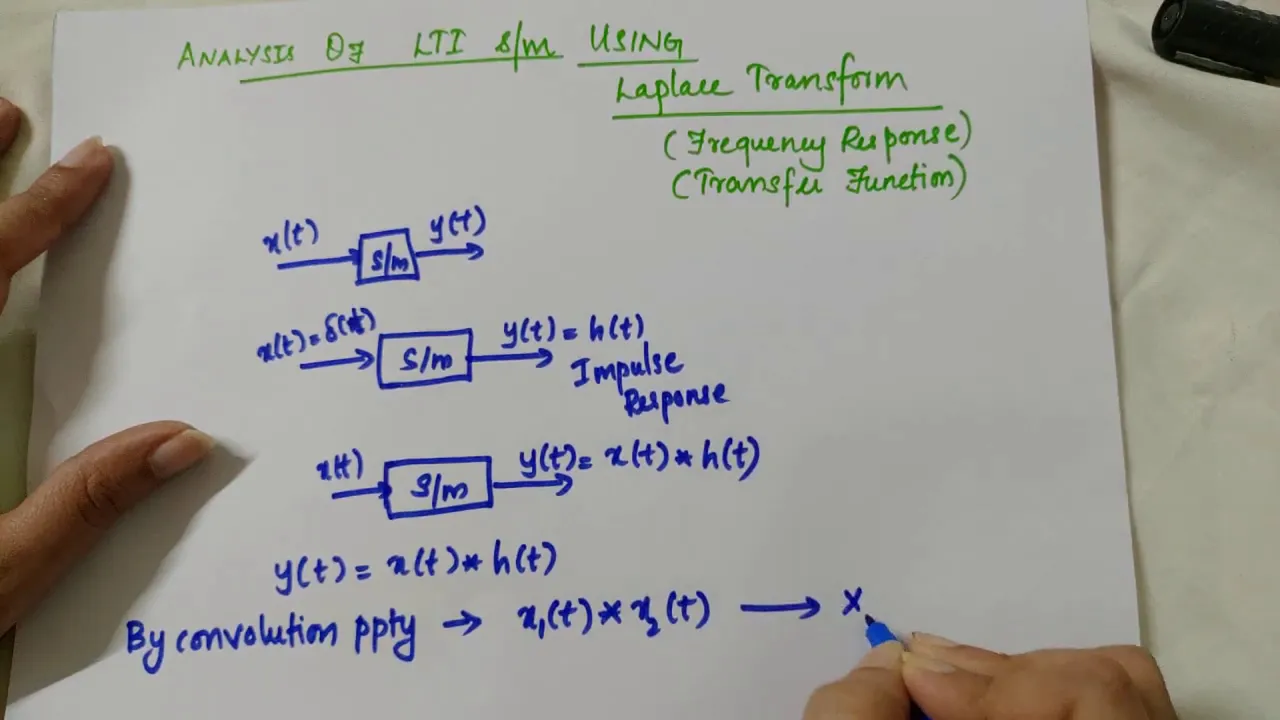 ANALYSIS OF LTI S/m USING
Laplace Transform
(Frequency Response)
(Transfer Function)
x(t) S/m y(t)
x(t)=δ(t) S/m y(t) = h(t)
Impulse
Response
x(t) S/m y(t)= x(t) * h(t)
y(t) = x(t) * h(t)
By convolution ppty → x₁(t) * x₂(t) → X